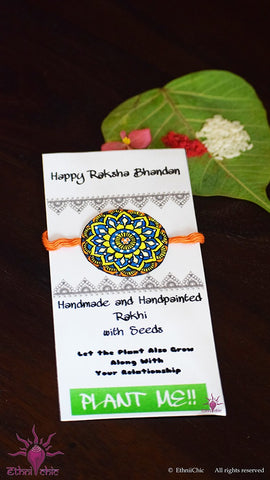 Happy Raksha Bhandan
Handmade and Handpainted
Rakhi
with Seeds
Let the Plant Also Grow
Along With
Your Relationship
PLANT ME!!
Ethnii chic
© EthniiChic All rights reserved